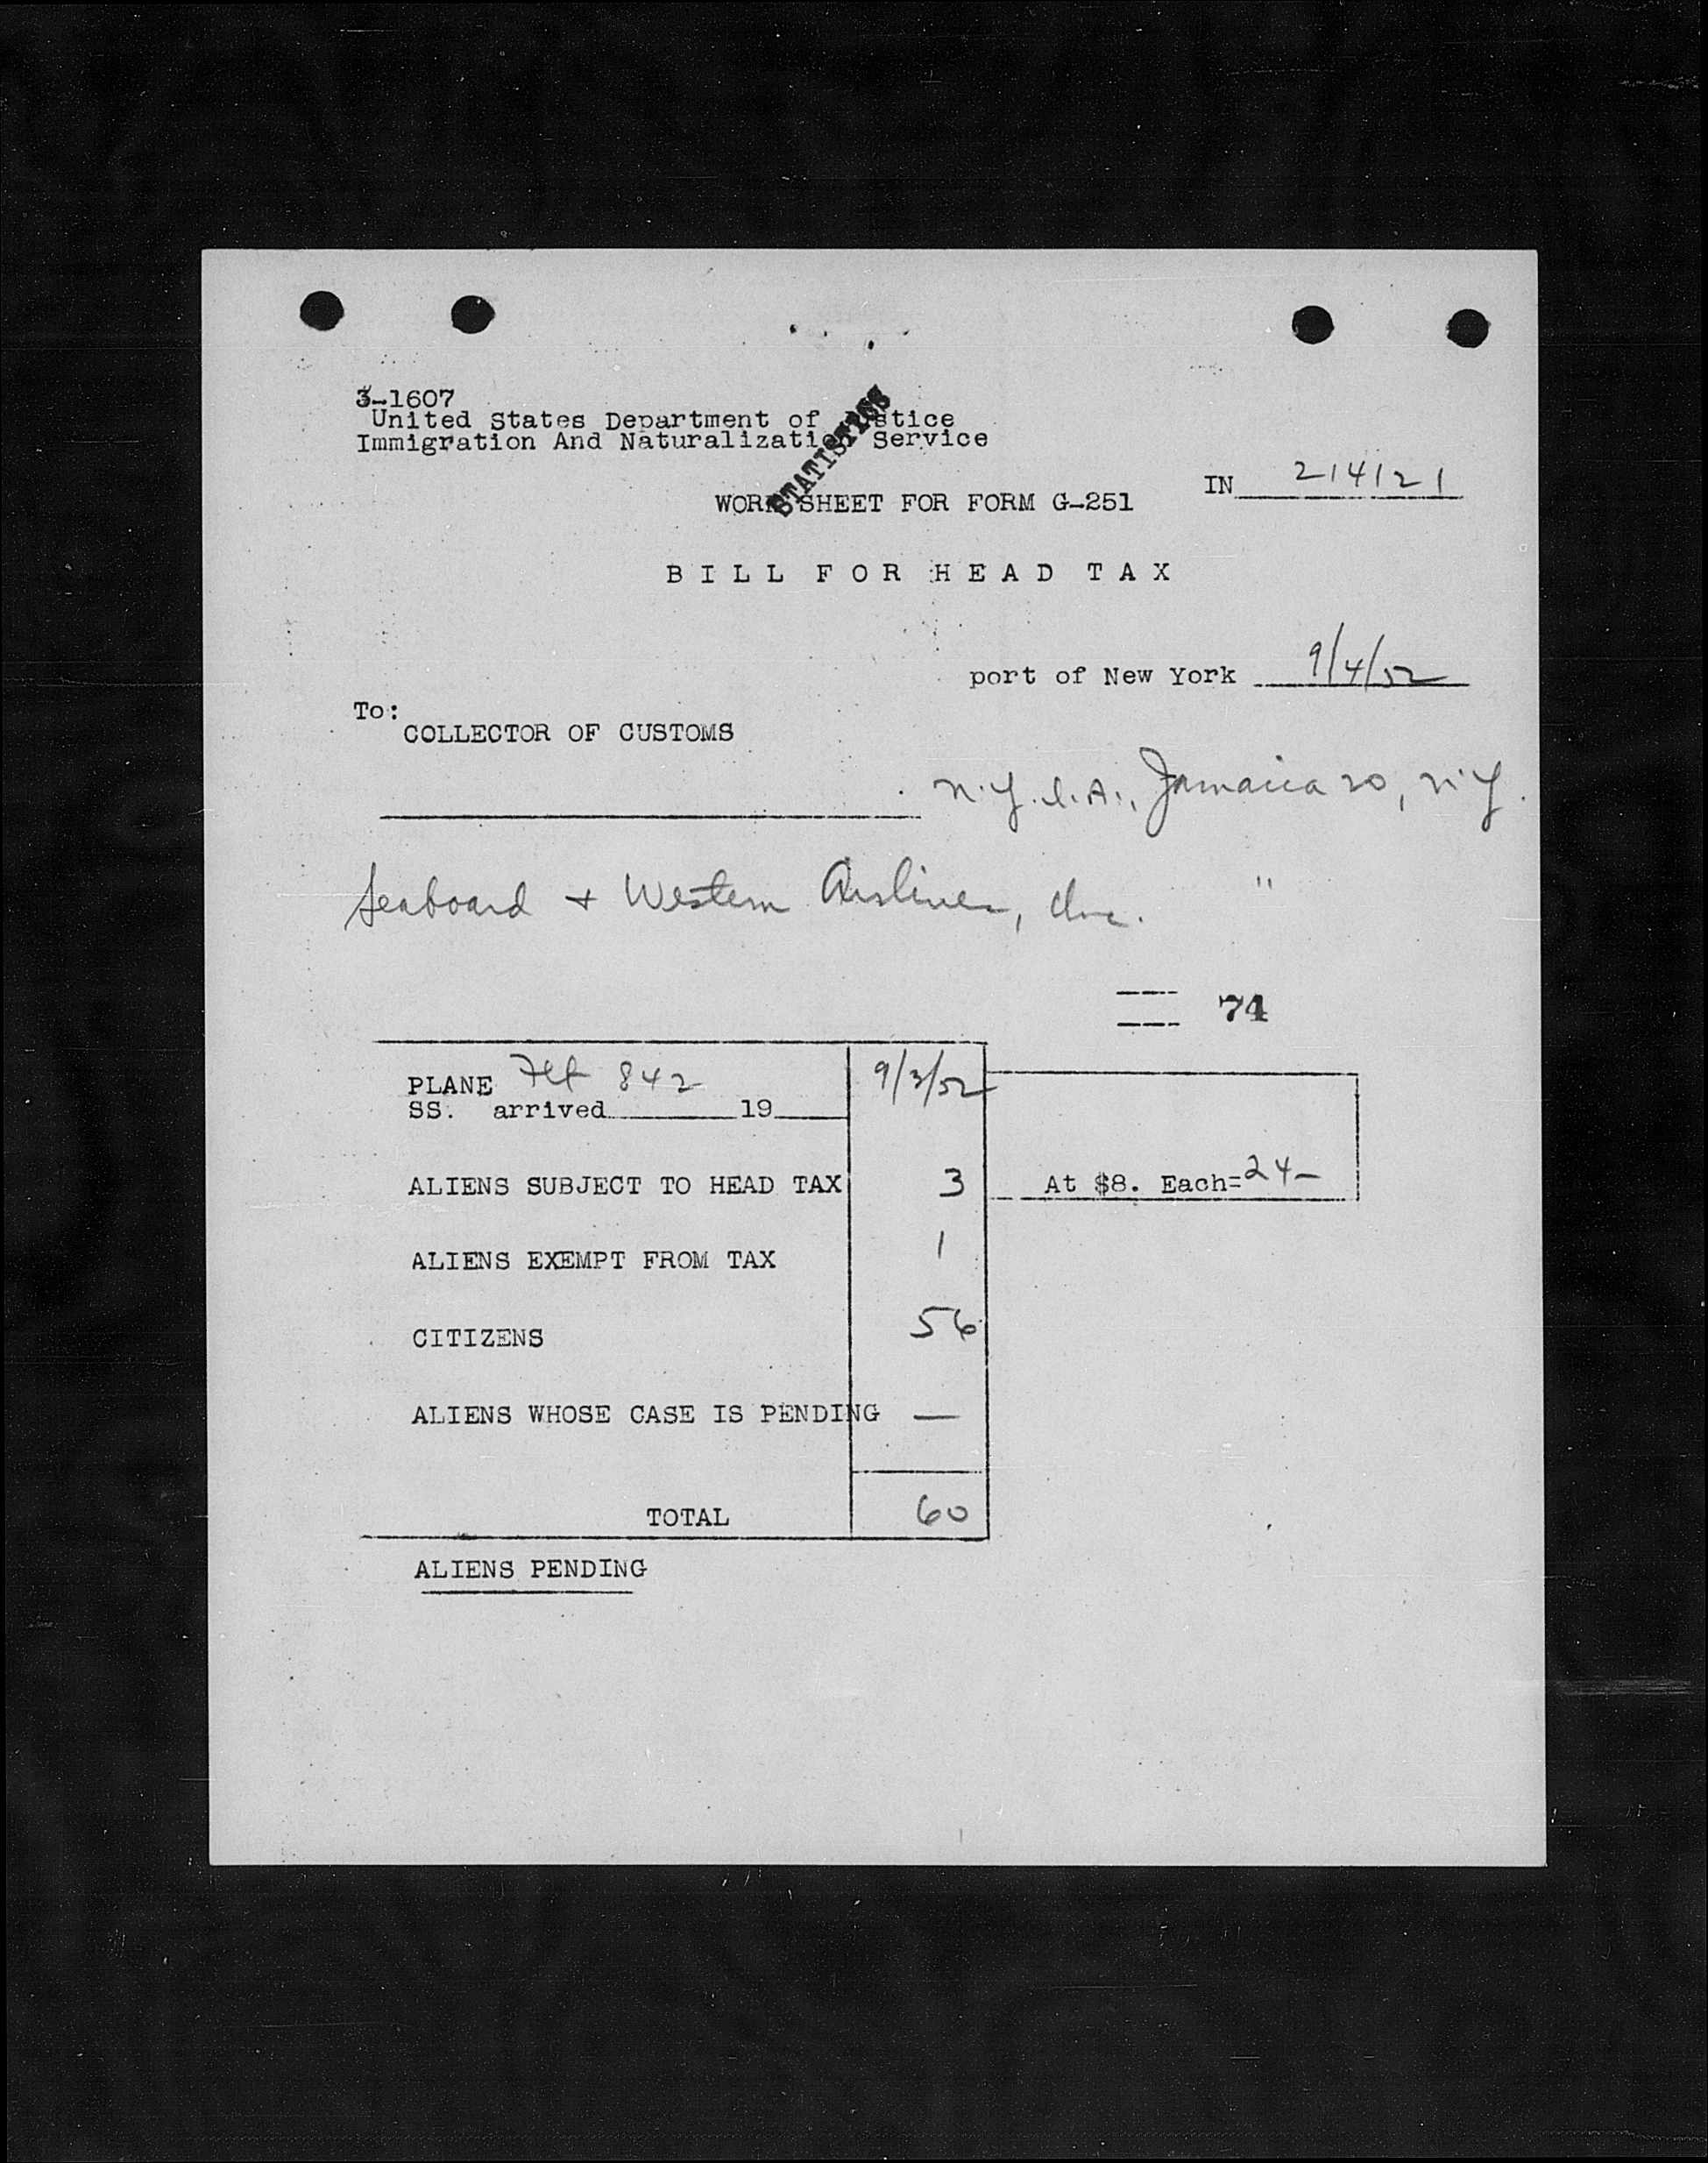 3-1607
United States Department of Justice
Immigration And Naturalization Service
STATISTICS
IN 214121
WORK SHEET FOR FORM G-251
BILL FOR HEAD TAX
port of New York 9/4/52
To:
COLLECTOR OF CUSTOMS
N.Y.I.A., Jamaica 20, N.Y.
Seaboard + Western Airlines, Inc. "
74
PLANE Flt 842 9/3/52
SS. arrived 19
ALIENS SUBJECT TO HEAD TAX 3 At $8. Each=24-
ALIENS EXEMPT FROM TAX 1
CITIZENS 56
ALIENS WHOSE CASE IS PENDING —
TOTAL 60
ALIENS PENDING